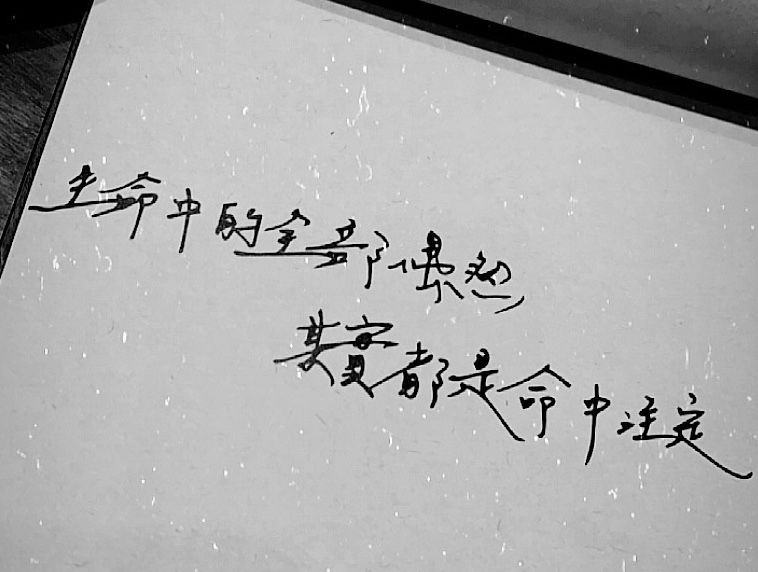 生命中的全部偶然
其實都是命中注定